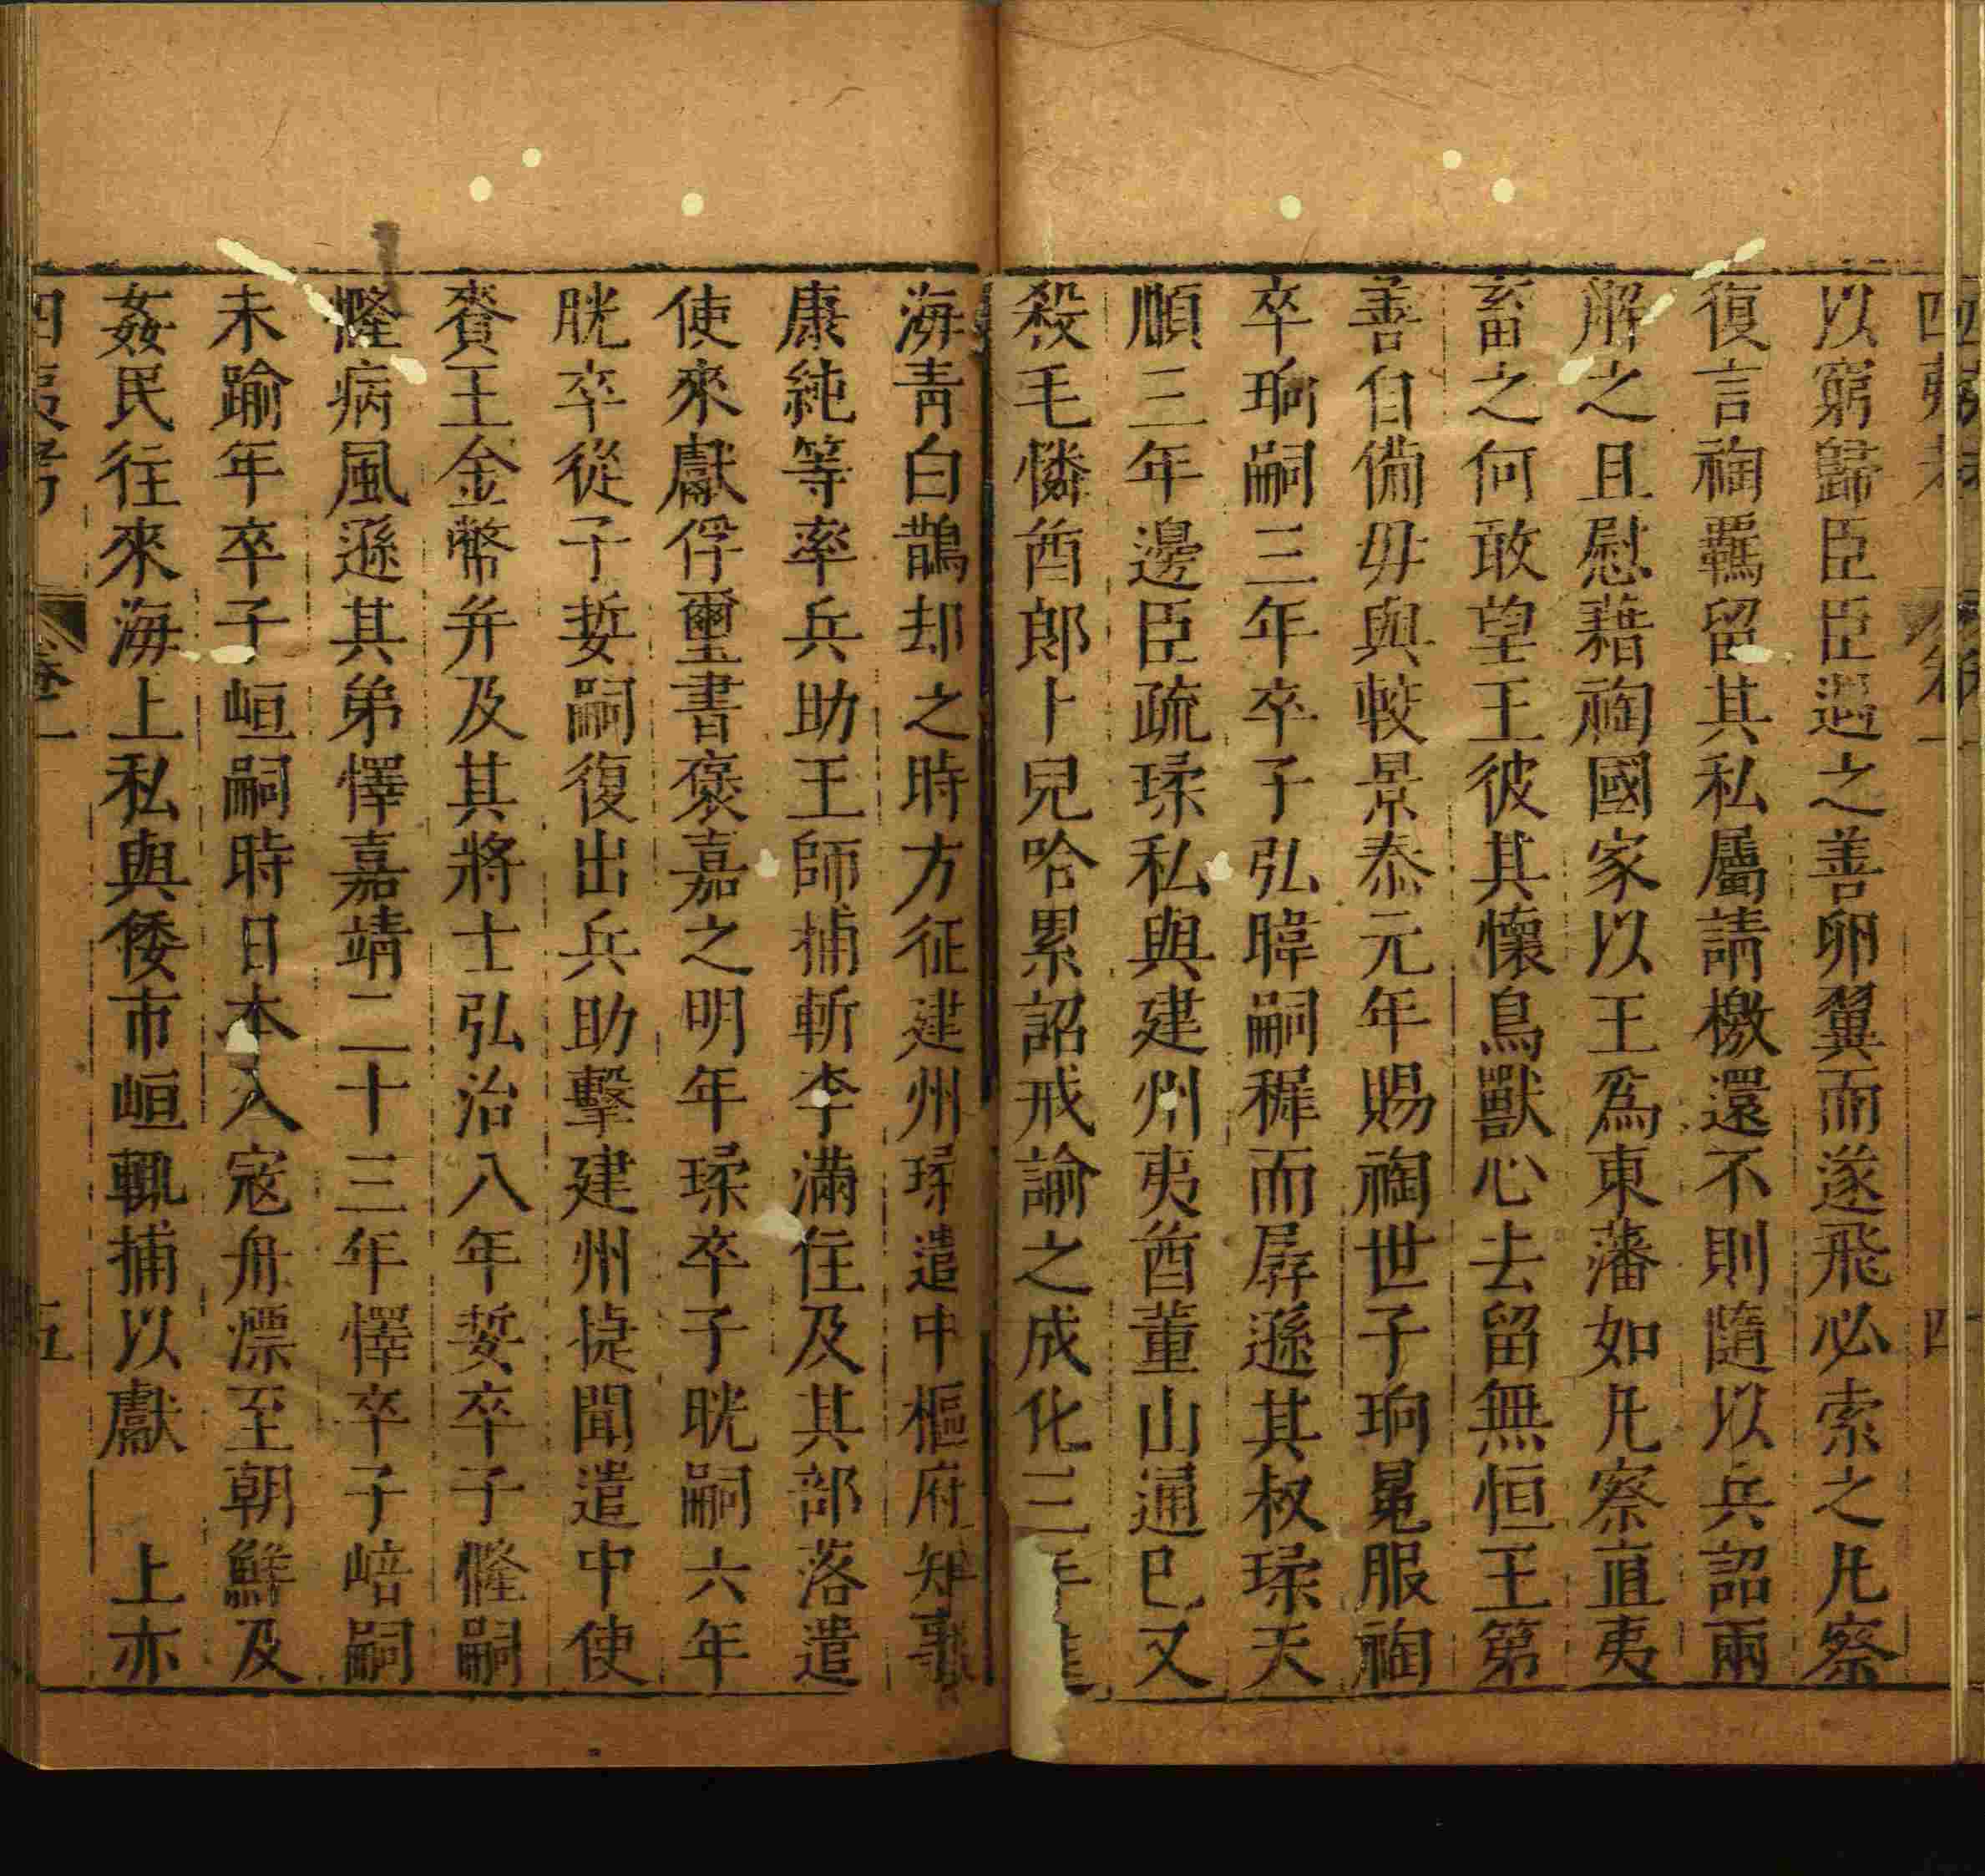 四夷考
卷一
四
以窮歸臣臣遇之善卵翼而遂飛必索之凡察
復言祹羈留其私屬請檄還不則隨以兵詔兩
解之且慰藉祹國家以王爲東藩如凡察直夷
畜之何敢望王彼其懷鳥獸心去留無恒王第
善自備毋與較景泰元年賜祹世子珦冕服祹
卒珦嗣三年卒子弘暐嗣穉而孱遜其叔瑈天
順三年邊臣疏瑈私與建州夷酋董山通巳又
殺毛憐酋郎卜兒哈累詔戒諭之成化三年
海青白鵲却之時方征建州瑈遣中樞府知事
康純等率兵助王師捕斬李滿住及其部落遣
使來獻俘璽書褒嘉之明年瑈卒子晄嗣六年
晄卒從子娎嗣復出兵助擊建州捷聞遣中使
賚王金幣并及其將士弘治八年娎卒子㦕嗣
㦕病風遜其弟懌嘉靖二十三年懌卒子峼嗣
未踰年卒子峘嗣時日本入寇舟漂至朝鮮及
姦民往來海上私與倭市峘輒捕以獻　上亦
四夷考
卷一
五